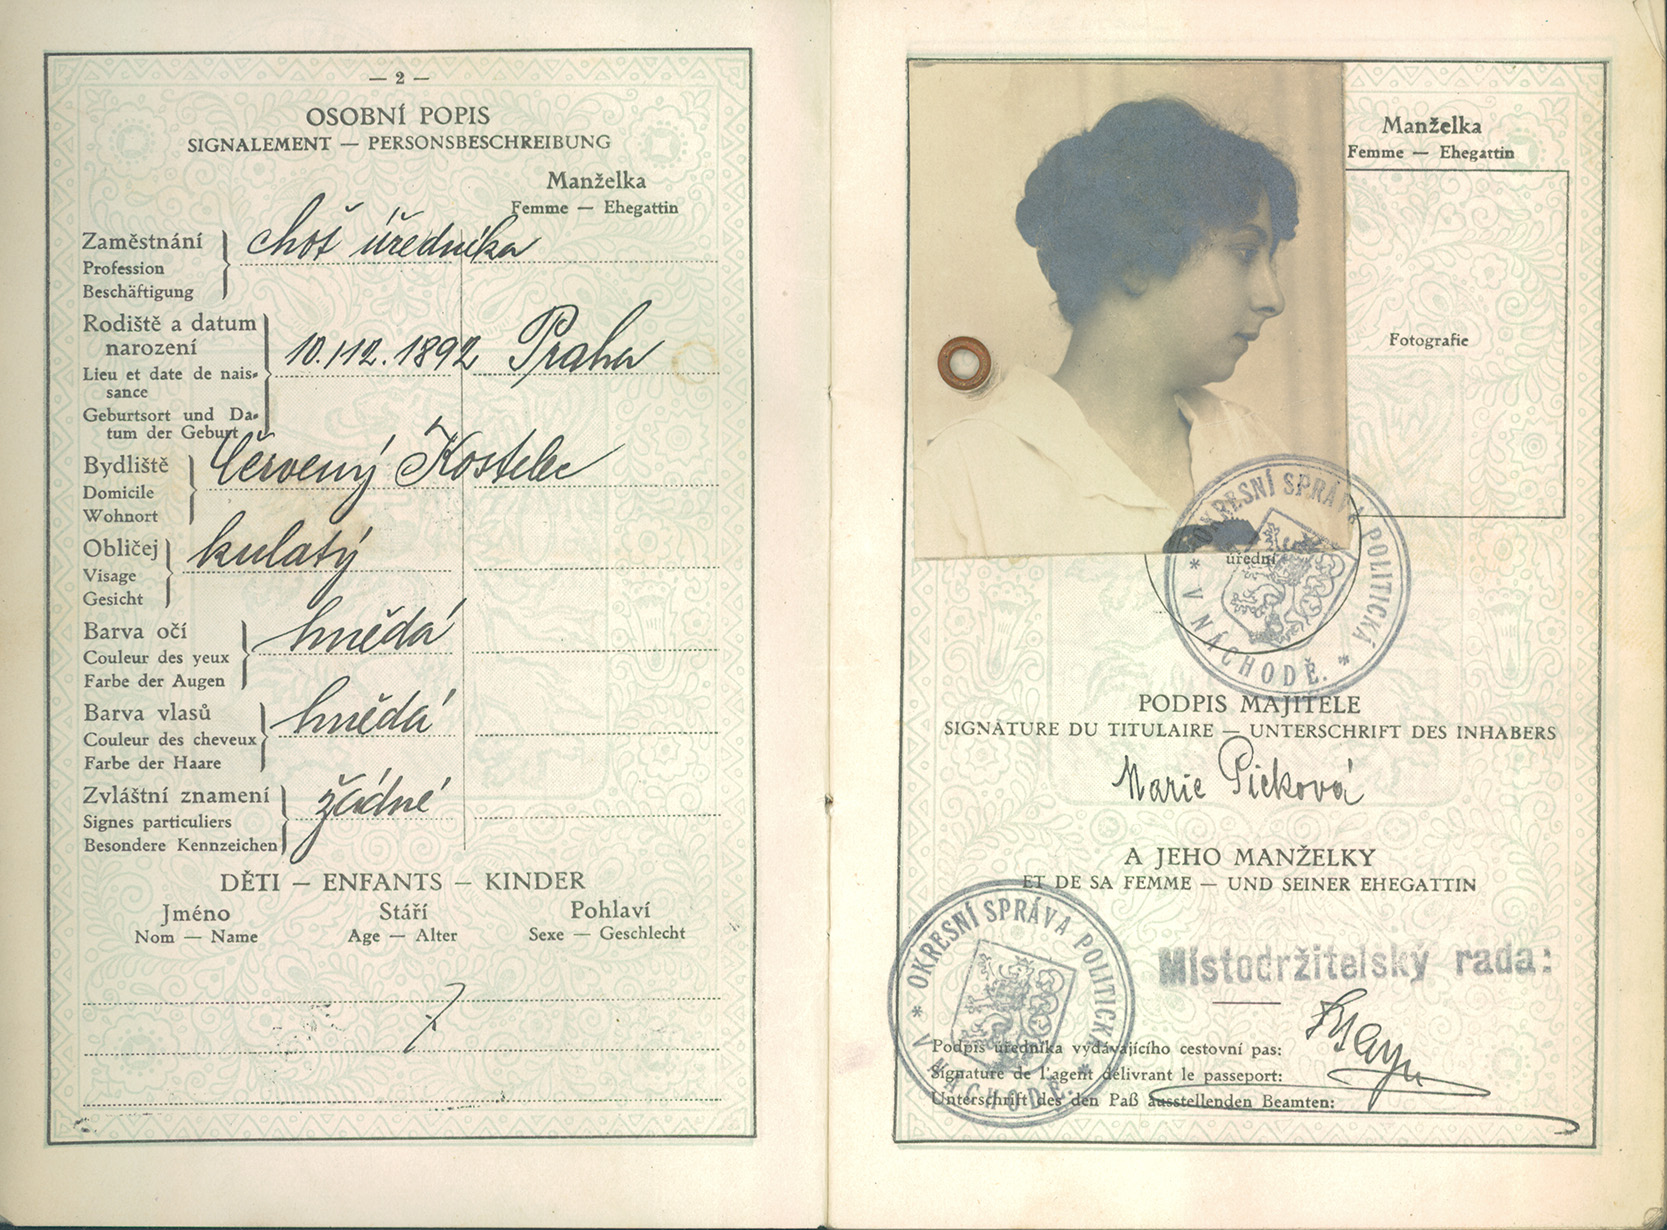 — 2 —
OSOBNÍ POPIS
SIGNALEMENT — PERSONSBESCHREIBUNG
Manželka
Femme — Ehegattin
Zaměstnání
Profession
Beschäftigung
choť úředníka
Rodiště a datum
narození
Lieu et date de nais-
sance
Geburtsort und Da-
tum der Geburt
10./12. 1892 Praha
Bydliště
Domicile
Wohnort
Červený Kostelec
Obličej
Visage
Gesicht
kulatý
Barva očí
Couleur des yeux
Farbe der Augen
hnědá
Barva vlasů
Couleur des cheveux
Farbe der Haare
hnědá
Zvláštní znamení
Signes particuliers
Besondere Kennzeichen
žádné
DĚTI — ENFANTS — KINDER
Jméno Stáří Pohlaví
Nom — Name Age — Alter Sexe — Geschlecht
Manželka
Femme — Ehegattin
Fotografie
úřední
* OKRESNÍ SPRÁVA POLITICKÁ *
V NÁCHODĚ.
PODPIS MAJITELE
SIGNATURE DU TITULAIRE — UNTERSCHRIFT DES INHABERS
Marie Picková
A JEHO MANŽELKY
ET DE SA FEMME — UND SEINER EHEGATTIN
* OKRESNÍ SPRÁVA POLITICKÁ *
V NÁCHODĚ.
Místodržitelský rada:
Podpis úředníka vydávajícího cestovní pas:
Signature de l'agent délivrant le passeport:
Unterschrift des den Paß ausstellenden Beamten: